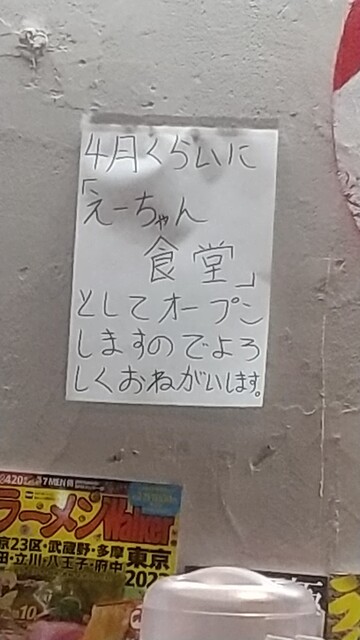 4月くらいに
「えーちゃん
食堂」
としてオープン
しますのでよろ
しくおねがいします。
ラーメンWalker
京23区・武蔵野・多摩 東京
田・立川・八王子・府中